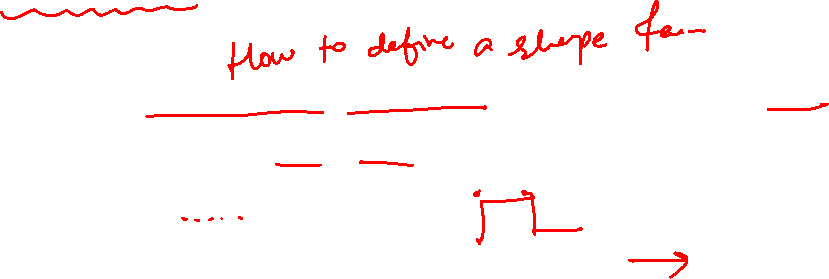 How to define a shape